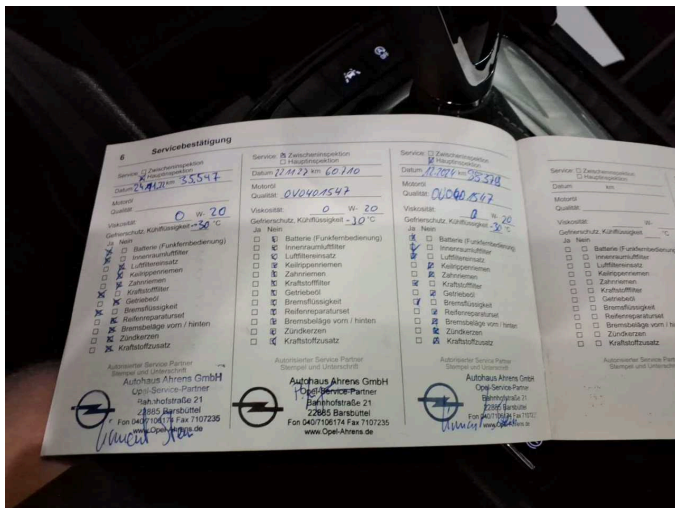 6 Servicebestätigung
Service: Zwischeninspektion
Hauptinspektion
Datum km 35.547
Motoröl
Qualität:
Viskosität: 0 W- 20
Gefrierschutz, Kühlflüssigkeit -30 °C
Ja Nein
Batterie (Funkfernbedienung)
Innenraumluftfilter
Luftfiltereinsatz
Keilrippenriemen
Zahnriemen
Kraftstofffilter
Getriebeöl
Bremsflüssigkeit
Reifenreparaturset
Bremsbeläge vorn / hinten
Zündkerzen
Kraftstoffzusatz
Autorisierter Service Partner
Stempel und Unterschrift
Autohaus Ahrens GmbH
Opel-Service-Partner
Bahnhofstraße 21
22885 Barsbüttel
Fon 040/7106174 Fax 7107235
www.Opel-Ahrens.de
Service: Zwischeninspektion
Hauptinspektion
Datum 22.11.23 km 60710
Motoröl
Qualität: OV0401547
Viskosität: 0 W- 20
Gefrierschutz, Kühlflüssigkeit -30 °C
Ja Nein
Batterie (Funkfernbedienung)
Innenraumluftfilter
Luftfiltereinsatz
Keilrippenriemen
Zahnriemen
Kraftstofffilter
Getriebeöl
Bremsflüssigkeit
Reifenreparaturset
Bremsbeläge vorn / hinten
Zündkerzen
Kraftstoffzusatz
Autorisierter Service Partner
Stempel und Unterschrift
Autohaus Ahrens GmbH
Opel-Service-Partner
Bahnhofstraße 21
22885 Barsbüttel
Fon 040/7106174 Fax 7107235
www.Opel-Ahrens.de
Service: Zwischeninspektion
Hauptinspektion
Datum km
Motoröl
Qualität: OV0401547
Viskosität: 0 W- 20
Gefrierschutz, Kühlflüssigkeit -30 °C
Ja Nein
Batterie (Funkfernbedienung)
Innenraumluftfilter
Luftfiltereinsatz
Keilrippenriemen
Zahnriemen
Kraftstofffilter
Getriebeöl
Bremsflüssigkeit
Reifenreparaturset
Bremsbeläge vorn / hinten
Zündkerzen
Kraftstoffzusatz
Autorisierter Service Partner
Stempel und Unterschrift
Autohaus Ahrens GmbH
Opel-Service-Partner
Bahnhofstraße 21
22885 Barsbüttel
Fon 040/7106174 Fax
www.Opel-Ahrens.de
Service: Zwischeninspektion
Hauptinspektion
Datum km
Motoröl
Qualität:
Viskosität: W-
Gefrierschutz, Kühlflüssigkeit °C
Ja Nein
Batterie (Funkfernbedienung
Innenraumluftfilter
Luftfiltereinsatz
Keilrippenriemen
Zahnriemen
Kraftstofffilter
Getriebeöl
Bremsflüssigkeit
Reifenreparaturset
Bremsbeläge vorn / hint
Zündkerzen
Kraftstoffzusatz
Autorisierter Service Part
Stempel und Unterschrift